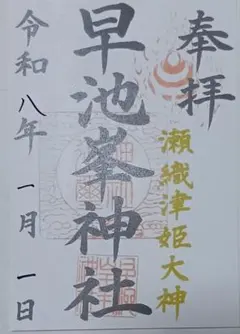 奉拝
瀬織津姫大神
早池峯神社
令和八年 一月 一日